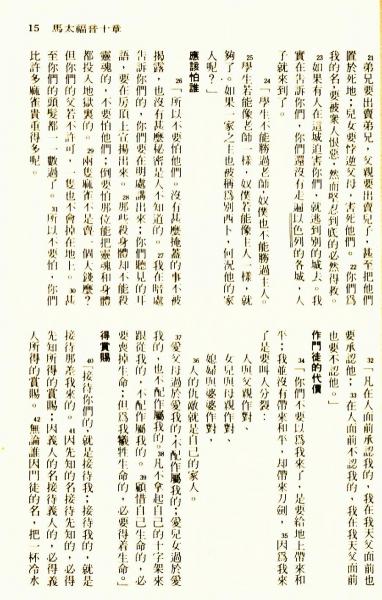 15 馬太福音十章
21弟兄要出賣弟兄，父親要出賣兒子，甚至把他們
置於死地；兒女要忤逆父母，害死他們。22你們爲
我的名，要被衆人恨惡；然而堅忍到底的必然得救。
23如果有人在這城迫害你們，就逃到別的城去。我
實在告訴你們，你們還沒有走遍以色列的各城，人
子就來到了。
24「學生不能勝過老師，奴僕也不能勝過主人。
25學生若能像老師一樣，奴僕若能像主人一樣，就
夠了。如果一家之主也被稱爲別西卜，何況他的家
人呢？」
應該怕誰
26「所以不要怕他們。沒有甚麼掩蓋的事不被
揭露，也沒有甚麼秘密是人不知道的。27我在暗處
告訴你們的，你們要在明處講出來；你們聽見的耳
語，要在房頂上宣揚出來。28那些殺身體卻不能殺
靈魂的，不要怕他們；倒要怕那位能把靈魂和身體
都投入地獄裏的。29兩隻麻雀不是賣一個大錢麼？
但你們的父若不許可，一隻也不會掉在地上。30甚
至你們的頭髮都一一數過了。31所以不要怕，你們
比許多麻雀貴重得多呢。
32「凡在人面前承認我的，我在我天父面前也
要承認他；33在人面前不認我的，我在我天父面前
也要不認他。」
作門徒的代價
34「你們不要以爲我來了，是要給地上帶來和
平；我並沒有帶來和平，却帶來刀劍，35因爲我來
了是要叫人分裂：
人與父親作對，
女兒與母親作對，
媳婦與婆婆作對，
36人的仇敵就是自己的家人。
37愛父母過於愛我的，不配作屬我的；愛兒女過於愛
我的，也不配作屬我的。38凡不拿起自己的十字架來
跟從我的，不配作屬我的。39顧惜自己生命的，必
要喪掉生命；但爲我犧牲生命的，必要得着生命。」
得賞賜
40「接待你們的，就是接待我；接待我的，就是
接待那差我來的。41因先知的名接待先知的，必得
先知所得的賞賜；因義人的名接待義人的，必得義
人所得的賞賜。42無論誰因門徒的名，把一杯冷水